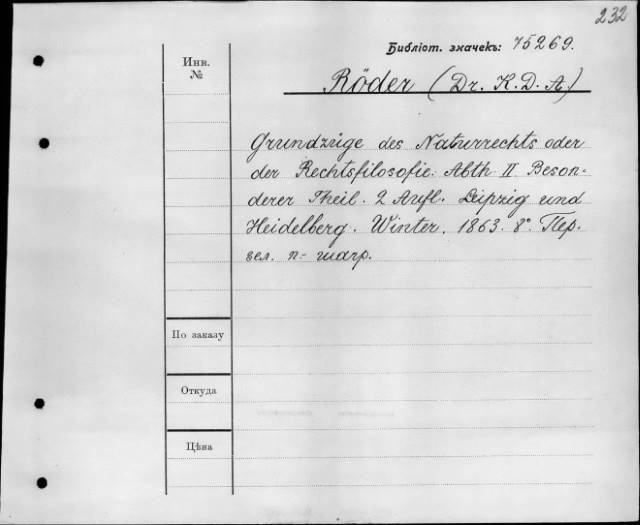 232
Библіот. значекъ: 75269.
Инв.
№
Röder (Dr. K. D. A.)
Grundzüge des Naturrechts oder
der Rechtsfilosofie. Abth. II Beson-
derer Theil. 2 Aufl. Leipzig und
Heidelberg. Winter. 1863. 8° Пер.
зел. п- шагр.
По заказу
Откуда
Цѣна